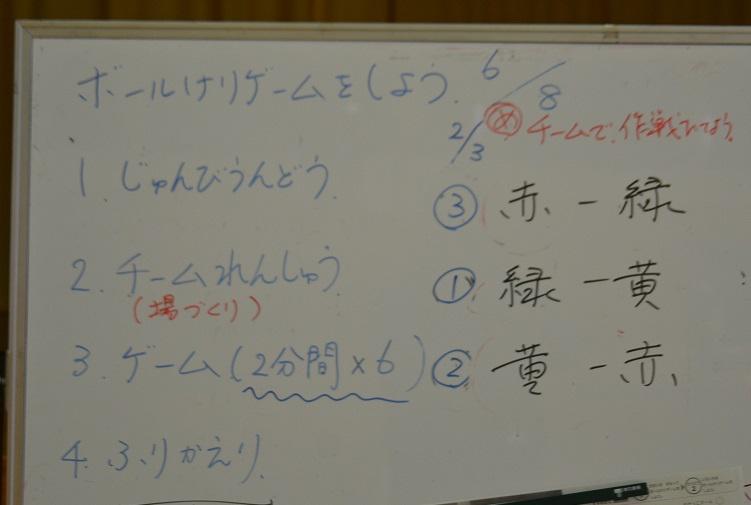 ボールけりゲームをしよう. 6/8
2/3 め チームで、作戦たてよう。
1. じゅんびうんどう.
③ 赤 - 緑
2. チームれんしゅう.
(場づくり)
① 緑 - 黄
3. ゲーム(2分間×6)
② 黄 - 赤
4. ふりかえり.